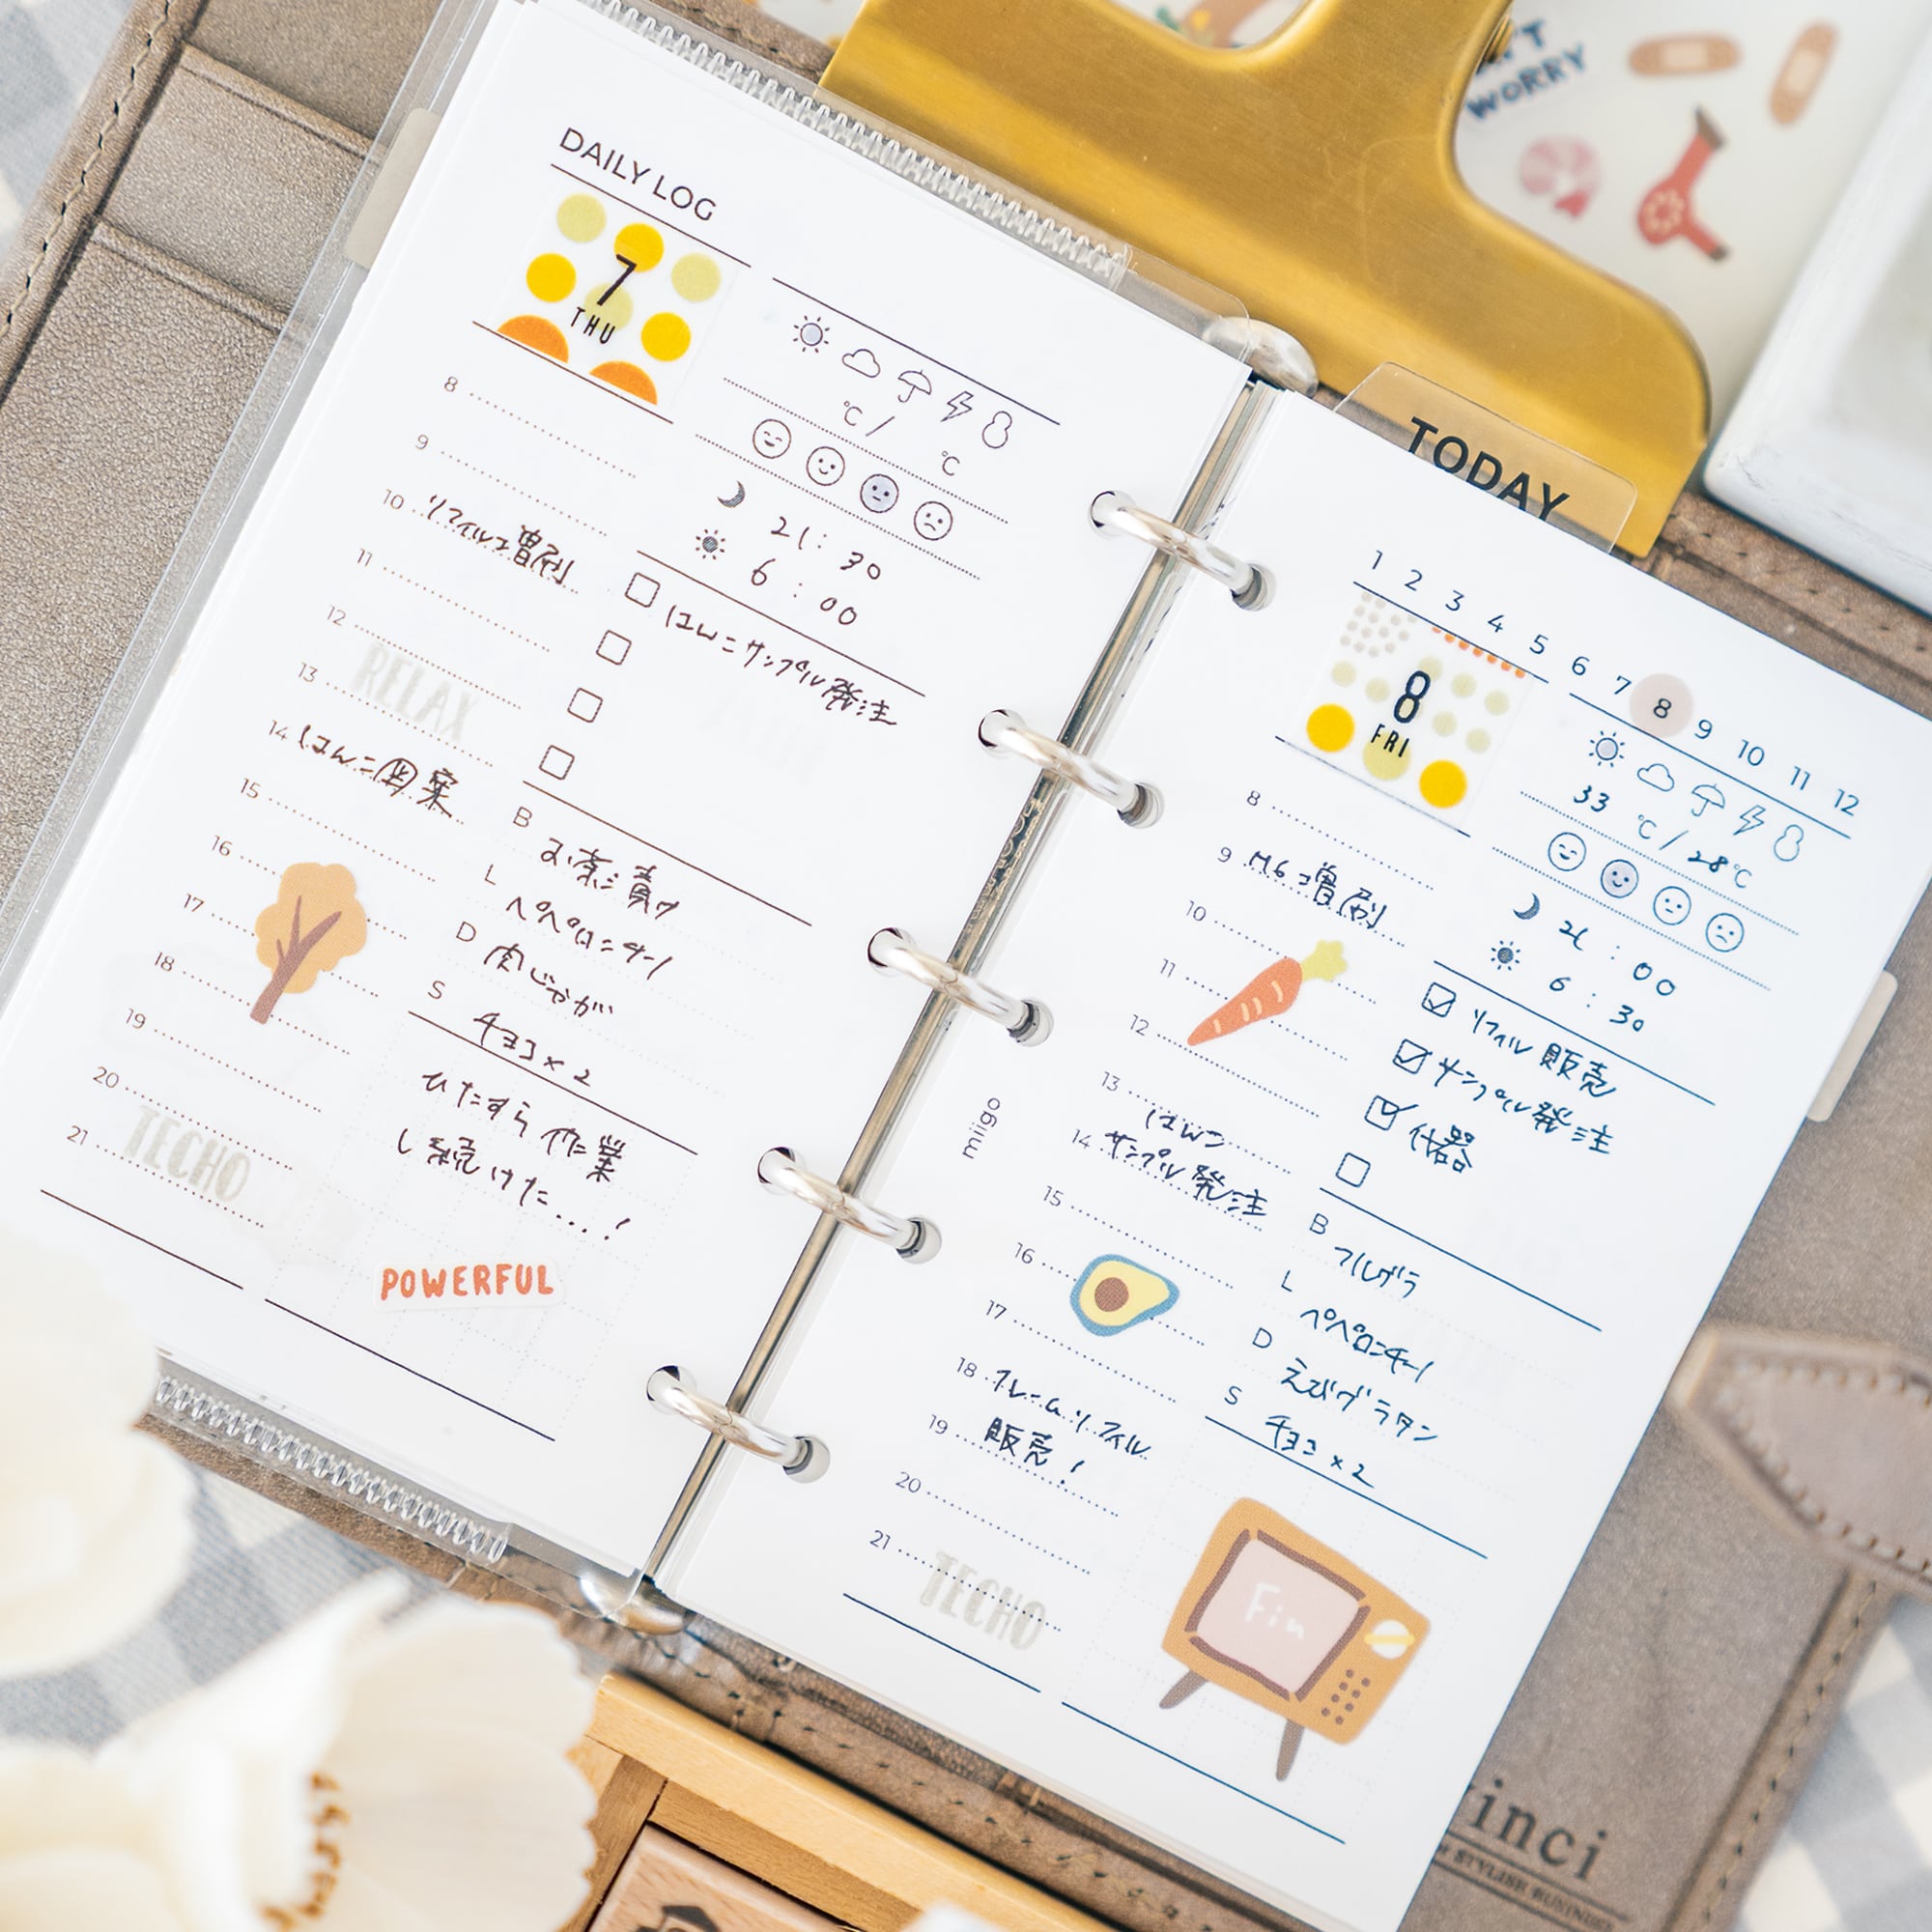 DAILY LOG
7
THU
℃ / ℃
21 : 30
6 : 00
8
9
10 リフィル増刷
11
12
RELAX
13
14 はんこ図案
15
16
17
18
19
20
TECHO
21
はんこサンプル発注
B お茶漬け
L ペペロンチーノ
D 肉じゃが
S チョコ×2
ひたすら作業
し続けた...!
POWERFUL
WORRY
TODAY
1 2 3 4 5 6 7 8 9 10 11 12
8
FRI
33 ℃ / 28 ℃
21 : 00
6 : 30
8
9 M6 増刷
10
11
12
13 はんこ
14 サンプル発注
15
16
17
18 フレームリフィル
19 販売!
20
21
TECHO
リフィル販売
サンプル発注
什器
B フルグラ
L ペペロンチーノ
D えびグラタン
S チョコ×2
Fin
miigo
inci
STYLISH BUSINESS